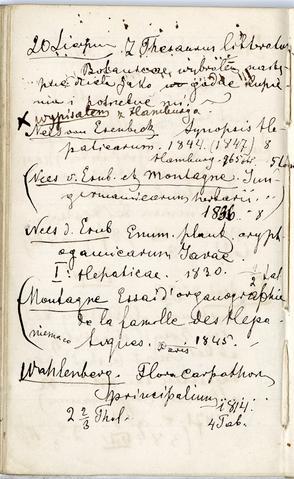 20 Sierpn. Z Thesaurus litteratu
Botanicae, wybrałem nastę-
pne dzieła jako godne kupie-
nia i potrzebne mi
x wypisałem z Hamburga.
Nees von Esenbeck Synopsis He-
paticarum. 1844. (1847) 8
Hamburg
(Nees v. Esnb. et Montagne. Jun-
germanicarum herbarii
1836 - 8
Nees d. Esnb Enum. plant. crypt-
ogamicarum Javae
I. Hepaticae. 1830.
(Montagne Essai d'organographie
de la famille des Hepa-
niemam tiques. Paris 1845.
Wahlenberg. Flora carpathor.
principalium 1814.
2 2/3 Thal. 4 Tab.